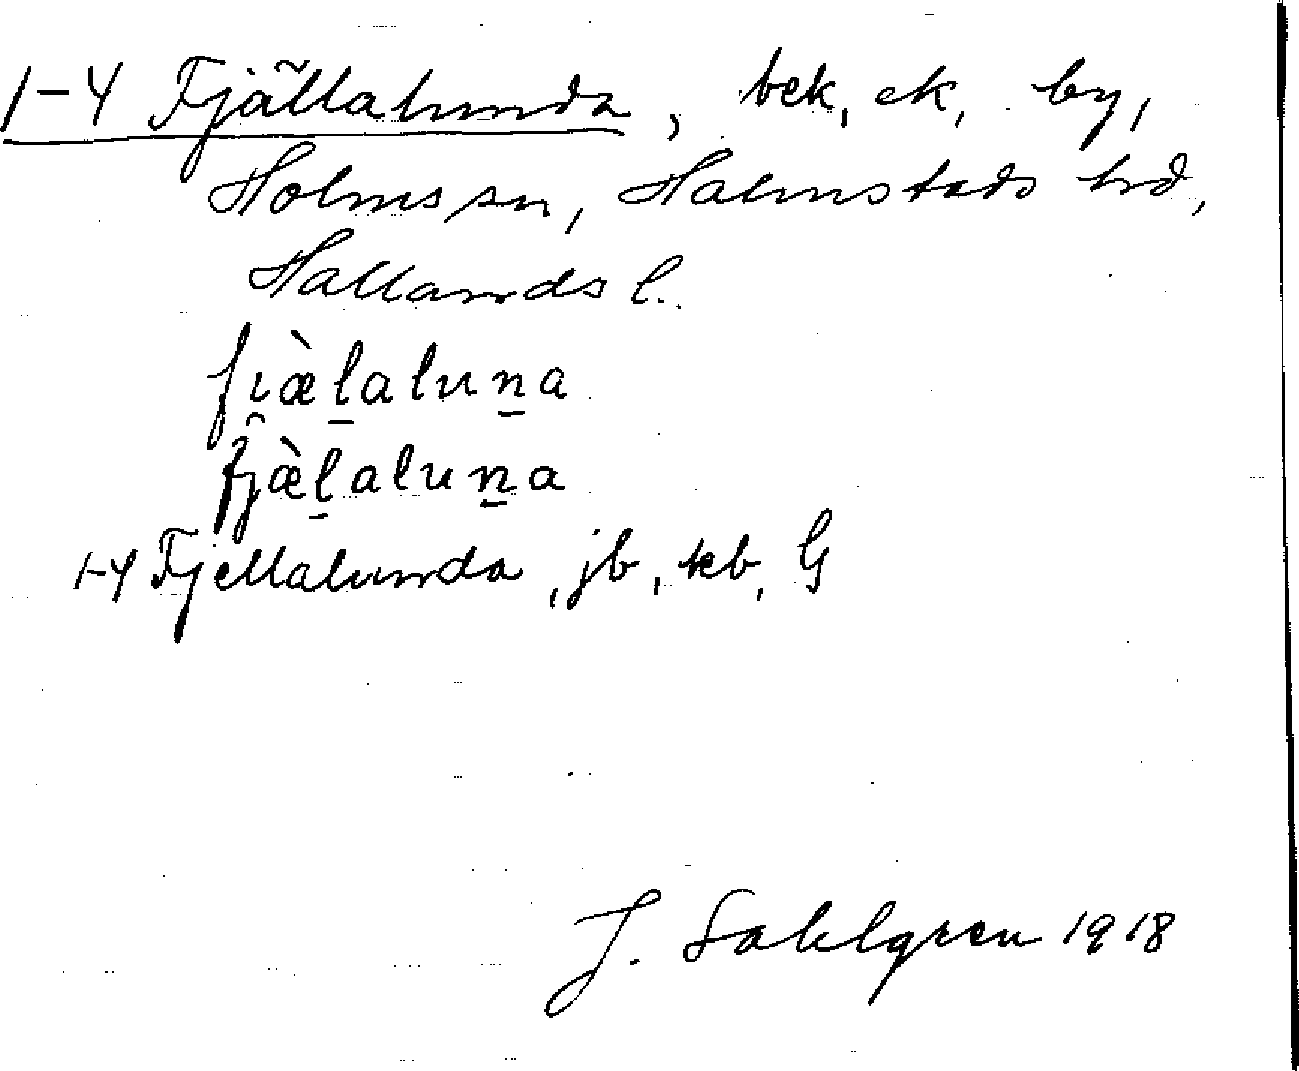 1-4 Fjällalunda, bek, ek, by,
Holms sn, Halmstads hd,
Hallands l.
fiæ̀l̠alun̠a
fj̑æ̀l̠alun̠a
1-4 Fjellalunda, jb, kb, G
J. Sahlgren 1918